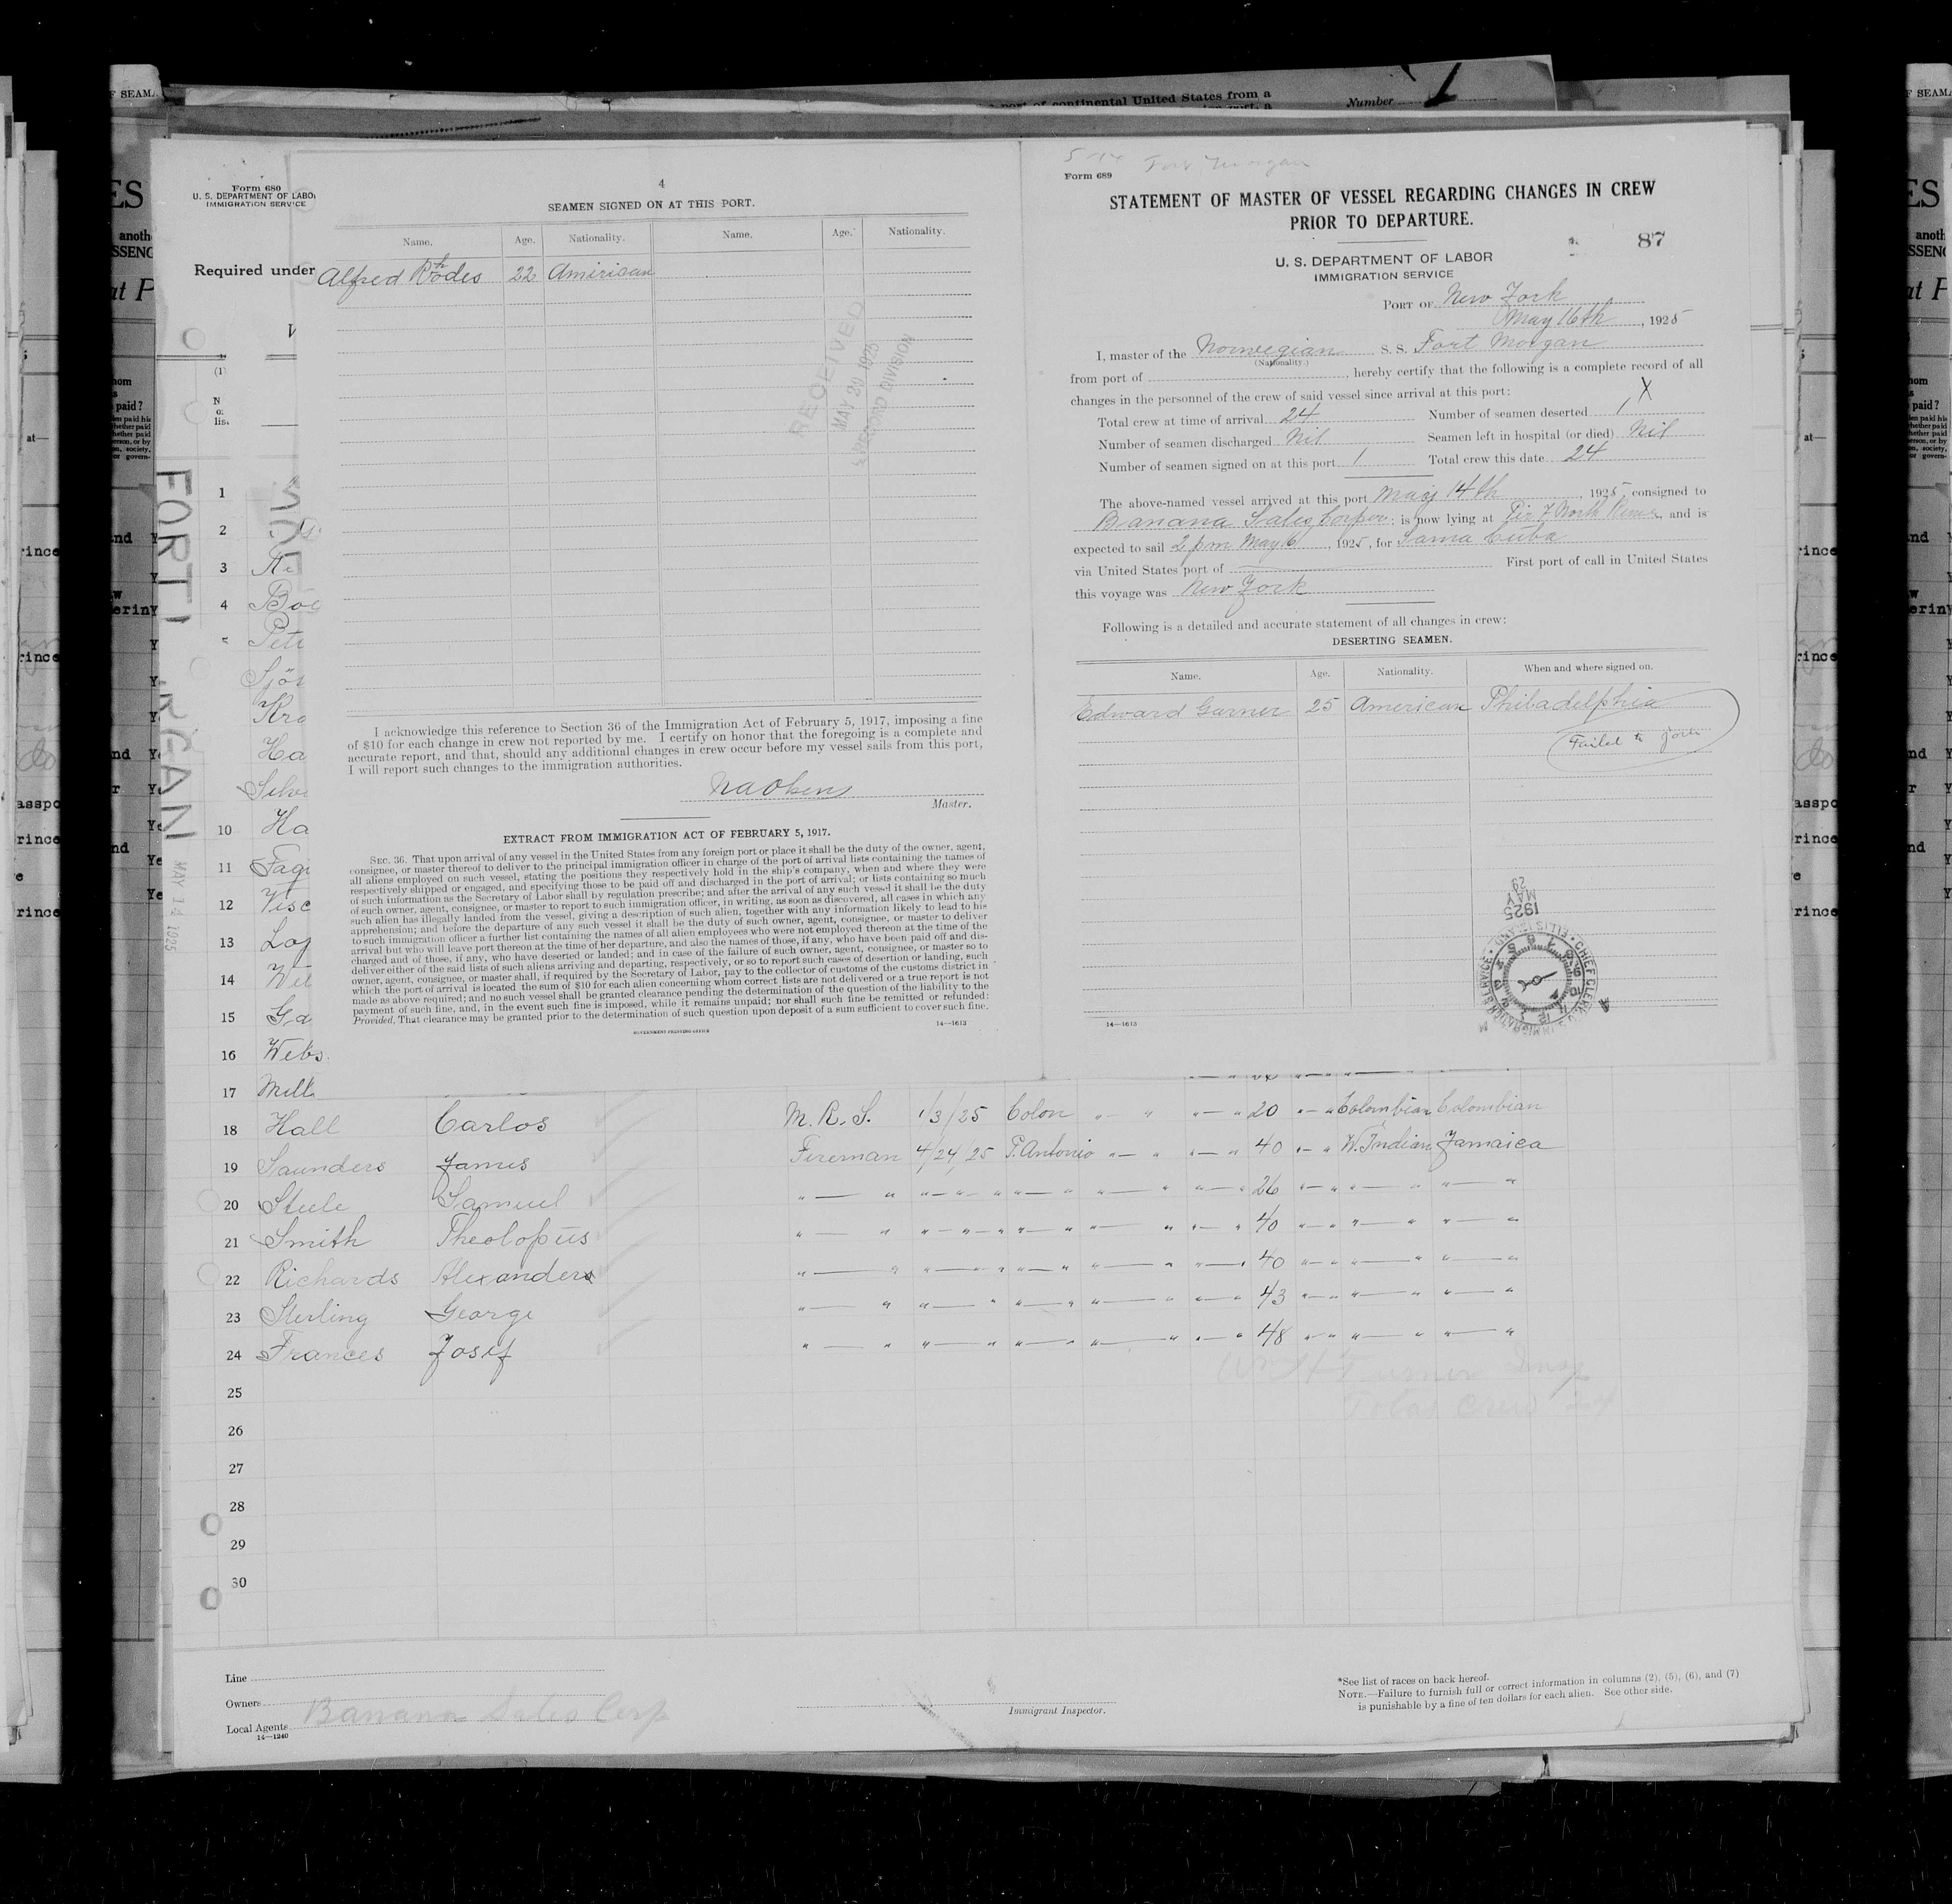 port of continental United States from a
Number 1
Form 680
U. S. DEPARTMENT OF LABO
IMMIGRATION SERVICE
Required under
FORT
RGAN
MAY 14 1925
4
SEAMEN SIGNED ON AT THIS PORT.
Name. Age. Nationality. Name. Age. Nationality.
Alfred Rhodes 22 Amirican
RECEIVED
MAY 29 1925
RECORD DIVISION
I acknowledge this reference to Section 36 of the Immigration Act of February 5, 1917, imposing a fine
of $10 for each change in crew not reported by me. I certify on honor that the foregoing is a complete and
accurate report, and that, should any additional changes in crew occur before my vessel sails from this port,
I will report such changes to the immigration authorities.
Master.
EXTRACT FROM IMMIGRATION ACT OF FEBRUARY 5, 1917.
SEC. 36. That upon arrival of any vessel in the United States from any foreign port or place it shall be the duty of the owner, agent,
consignee, or master thereof to deliver to the principal immigration officer in charge of the port of arrival lists containing the names of
all aliens employed on such vessel, stating the positions they respectively hold in the ship's company, when and where they were
respectively shipped or engaged, and specifying those to be paid off and discharged in the port of arrival; or lists containing so much
of such information as the Secretary of Labor shall by regulation prescribe; and after the arrival of any such vessel it shall be the duty
of such owner, agent, consignee, or master to report to such immigration officer, in writing, as soon as discovered, all cases in which any
such alien has illegally landed from the vessel, giving a description of such alien, together with any information likely to lead to his
apprehension; and before the departure of any such vessel it shall be the duty of such owner, agent, consignee, or master to deliver
to such immigration officer a further list containing the names of all alien employees who were not employed thereon at the time of the
arrival but who will leave port thereon at the time of her departure, and also the names of those, if any, who have been paid off and dis-
charged and of those, if any, who have deserted or landed; and in case of the failure of such owner, agent, consignee, or master so to
deliver either of the said lists of such aliens arriving and departing, respectively, or so to report such cases of desertion or landing, such
owner, agent, consignee, or master, shall, if required by the Secretary of Labor, pay to the collector of customs of the customs district in
which the port of arrival is located the sum of $10 for each alien concerning whom correct lists are not delivered or a true report is not
made as above required; and no such vessel shall be granted clearance pending the determination of the question of the liability to the
payment of such fine, and, in the event such fine is imposed, while it remains unpaid; nor shall such fine be remitted or refunded:
Provided, That clearance may be granted prior to the determination of such question upon deposit of a sum sufficient to cover such fine.
GOVERNMENT PRINTING OFFICE 14—1613
5-14 Fort Morgan
Form 689
STATEMENT OF MASTER OF VESSEL REGARDING CHANGES IN CREW
PRIOR TO DEPARTURE.
87
U. S. DEPARTMENT OF LABOR
IMMIGRATION SERVICE
PORT OF New York
May 16th, 1925
I, master of the Norwegian S. S. Fort Morgan
(Nationality.)
from port of , hereby certify that the following is a complete record of all
changes in the personnel of the crew of said vessel since arrival at this port:
Total crew at time of arrival 24 Number of seamen deserted 1 X
Number of seamen discharged Nil Seamen left in hospital (or died) Nil
Number of seamen signed on at this port 1 Total crew this date 24
The above-named vessel arrived at this port May 14th, 1925, consigned to
Banana Sales Corpor; is now lying at Pir 7 North River, and is
expected to sail 2 pm May 16, 1925, for Sama Cuba
via United States port of First port of call in United States
this voyage was New York
Following is a detailed and accurate statement of all changes in crew:
DESERTING SEAMEN.
Name. Age. Nationality. When and where signed on.
Edward Garner 25 American Philadelphia
Failed to join
1925 MAY 29
CHIEF CLERK, U.S. IMMIGRATION SERVICE, ELLIS ISLAND
14—1613
1
2
3 Re
4 Boe
5 Pete
Sjör
Kra
Ha
Silve
10 Ha
11 Fage
12 Visc
13 Lop
14 Wil
15 Ga
16 Webs
17 Mill
18 Hall Carlos M.R.S. 1/3/25 Colon " — " " — " 20 " — " Colombian Colombian
19 Saunders James Fireman 4/24/25 P. Antonio " — " " — " 40 " — " W. Indian Jamaica
20 Steele Samuel " — " " — " " — " " — " " — " 26 " — " " — " " — "
21 Smith Theolopus " — " " — " " — " " — " " — " 40 " — " " — " " — "
22 Richards Alexanders " — " " — " " — " " — " " — " 40 " — " " — " " — "
23 Sterling George " — " " — " " — " " — " " — " 43 " — " " — " " — "
24 Frances Josef " — " " — " " — " " — " " — " 48 " — " " — " " — "
25 Wm H Turner Insp
26 Total Crew 24
27
28
29
30
Line
Owners
Local Agents Banana Sales Corp
14—1240
Immigrant Inspector.
*See list of races on back hereof.
NOTE.—Failure to furnish full or correct information in columns (2), (5), (6), and (7)
is punishable by a fine of ten dollars for each alien. See other side.